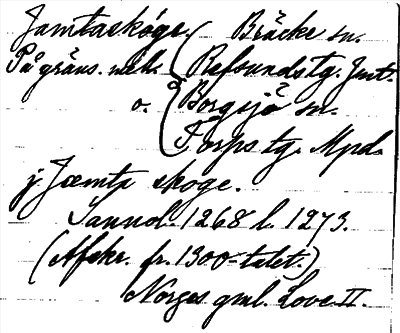 Jamtaskóge. Bräcke sn.
På gräns. mell. Refsundstg. Jmt.
o. Borgsjö sn.
Torps tg. Mpd.
j Jæmta skoge.
Sannol. 1268 l. 1273.
(Afskr. fr. 1300-talet.)
Norges gml. Love II.